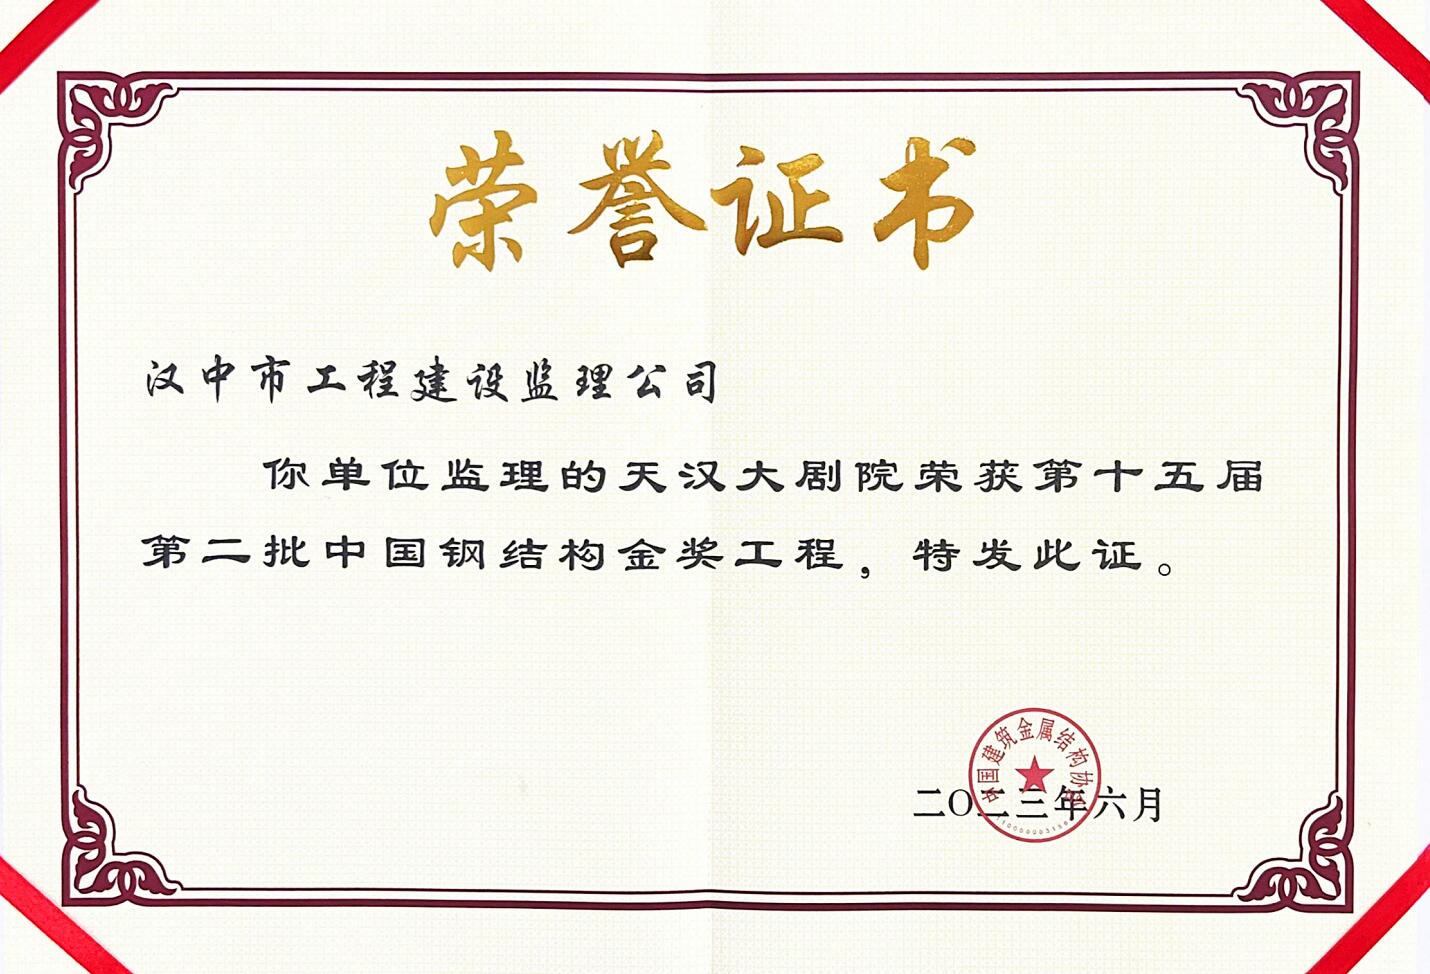 荣誉证书
汉中市工程建设监理公司
你单位监理的天汉大剧院荣获第十五届
第二批中国钢结构金奖工程，特发此证。
中国建筑金属结构协会
二〇二三年六月